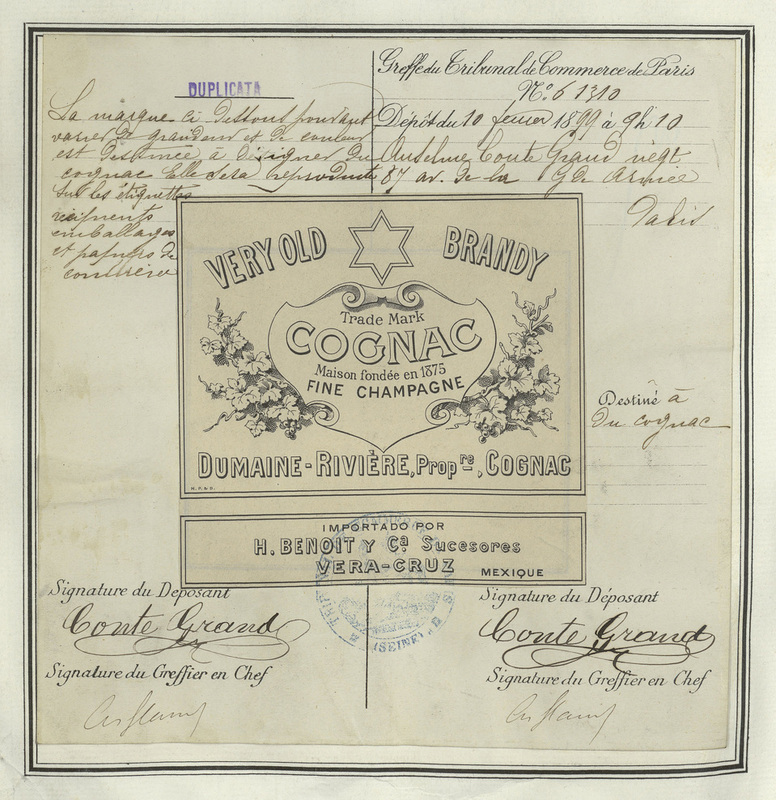 DUPLICATA
La marque ci dessous pouvant
varier de grandeur et de couleur
est destinée à désigner du
cognac Elle sera reproduite
sur les étiquettes
récipients
emballages
et papiers de
commerce
Greffe du Tribunal de Commerce de Paris
No. 61310
Dépôt du 10 février 1899 à 9h 10
Anselme Conte Grand négt
87 av. de la Gde Armée
Paris
VERY OLD BRANDY
Trade Mark
COGNAC
Maison fondée en 1875
FINE CHAMPAGNE
DUMAINE-RIVIÈRE, Propre, COGNAC
Destiné à
du cognac
IMPORTADO POR
H. BENOIT Y Ca Sucesores
VERA-CRUZ MEXIQUE
(SEINE)
Signature du Déposant
Conte Grand
Signature du Greffier en Chef
Signature du Déposant
Conte Grand
Signature du Greffier en Chef